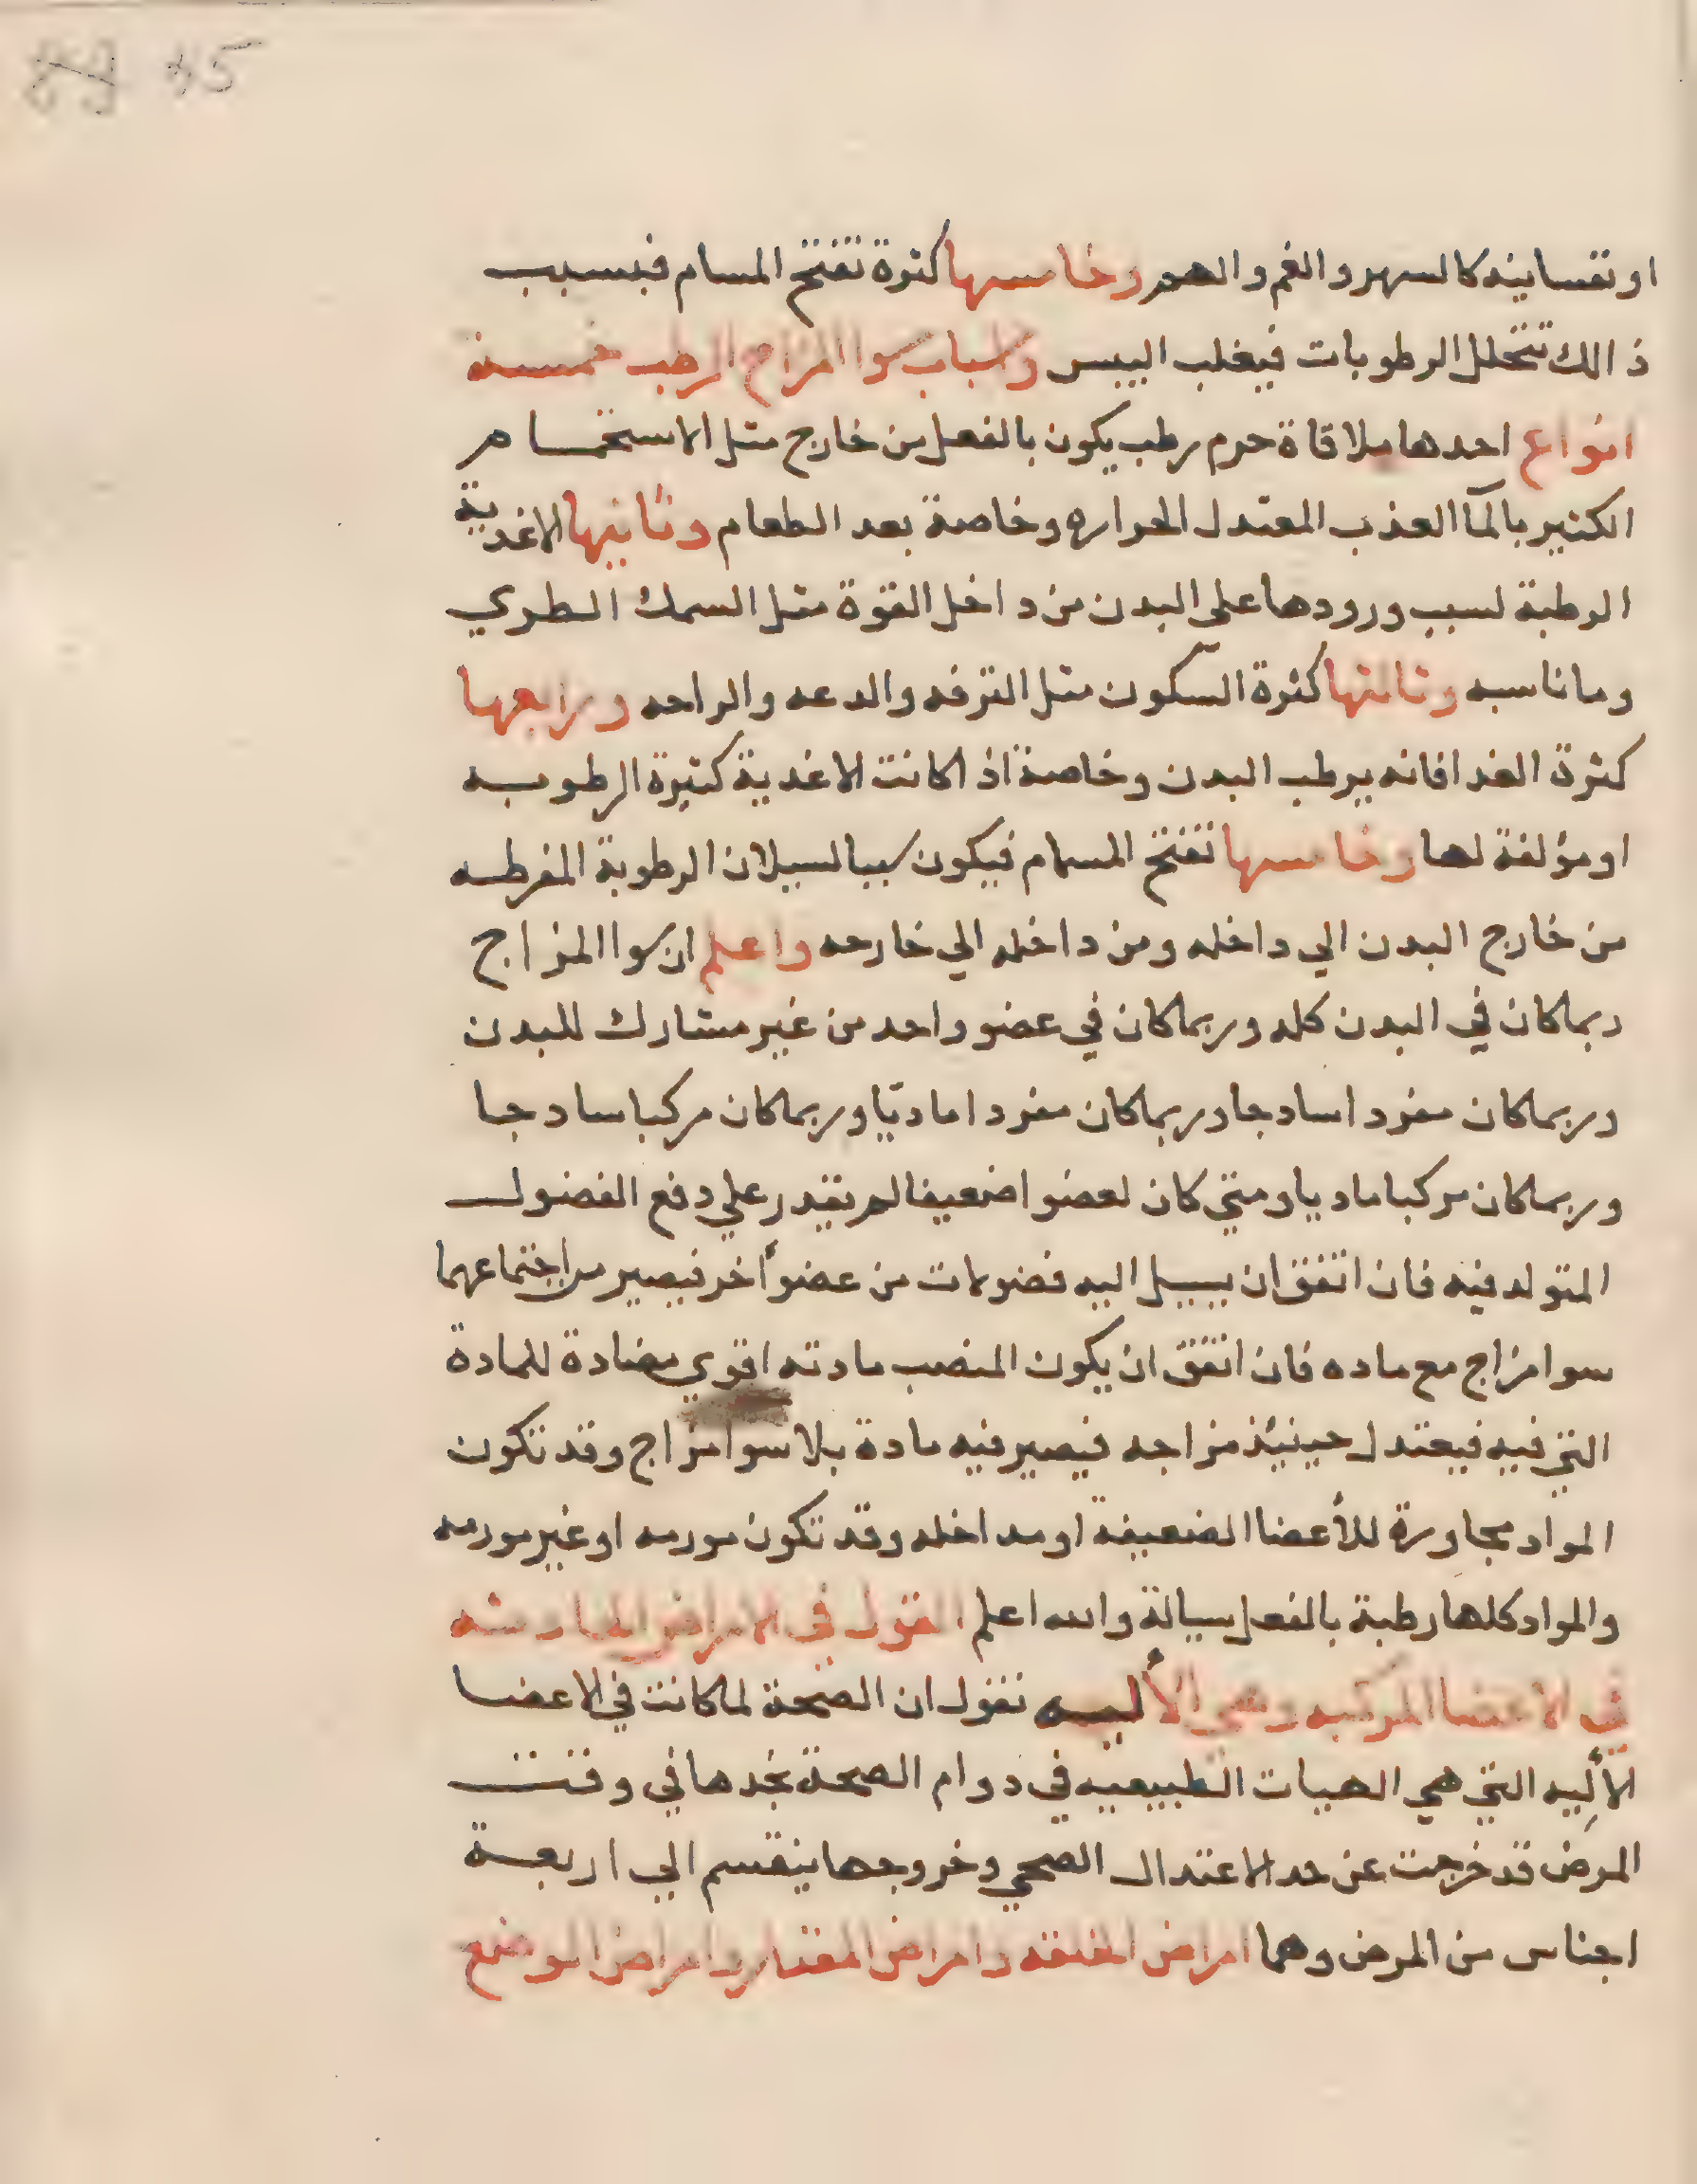 45
او نفسانيه كالسهر والغم والهم وخامسها كثرة تفتح المسام فبسبب
ذالك تتحلل الرطوبات فيغلب اليبس واسباب سوا المزاج الرطب خمسة
انواع احدها ملاقاة جرم رطب يكون بالفعل من خارج مثل الاستحمام
الكثير بالمآ العذب المعتدل الحراره وخاصة بعد الطعام وثانيها الاغدية
الرطبة لسبب ورودها على البدن من داخل القوة مثل السمك الطري
وما ناسبه وثالثها كثرة السكون مثل الترفه والدعه والراحه ورابعها
كثرة الغدا فانه يرطب البدن وخاصة اذا كانت الاغدية كثيرة الرطوبه
او مؤلفة لها وخامسها تفتح المسام فيكون سببا لسيلان الرطوبة المفرطه
من خارج البدن الي داخله ومن داخله الي خارجه واعلم ان سوا المزاج
ربما كان في البدن كله وربما كان في عضو واحد من غير مشارك للبدن
وربما كان مفردا سادجا وربما كان مفردا ماديّا وربما كان مركبا سادجا
وربما كان مركبا ماديا ومتي كان لعضوا ضعيفا لم يقدر علي دفع الفضول
المتولد فيه فان اتفق ان يسيل اليه فضولات من عضو أخر فيصير من اجتماعهما
سوا مزاج مع ماده فان اتفق ان يكون المنصب مادته اقوي مضادة للمادة
التي فيه فيعتدل حينئذ مزاجه فيصير فيه مادة بلا سوا مزاج وقد تكون
المواد مجاورة للأعضا الضعيفة او مداخله وقد تكون مورمه او غير مورمه
والمواد كلها رطبة بالفعل سيالة والله اعلم القول في الامراض الحادثه
في الاعضا المركبه وهي الأليه نقول ان الصحة لما كانت في الاعضا
الأليه التي هي الهيات الطبيعيه في دوام الصحة نجدها في وقت
المرض قد خرجت عن حد الاعتدال الصحي وخروجها ينقسم الي اربعة
اجناس من المرض وهما امراض الخلقه وامراض المقدار وامراض الوضع